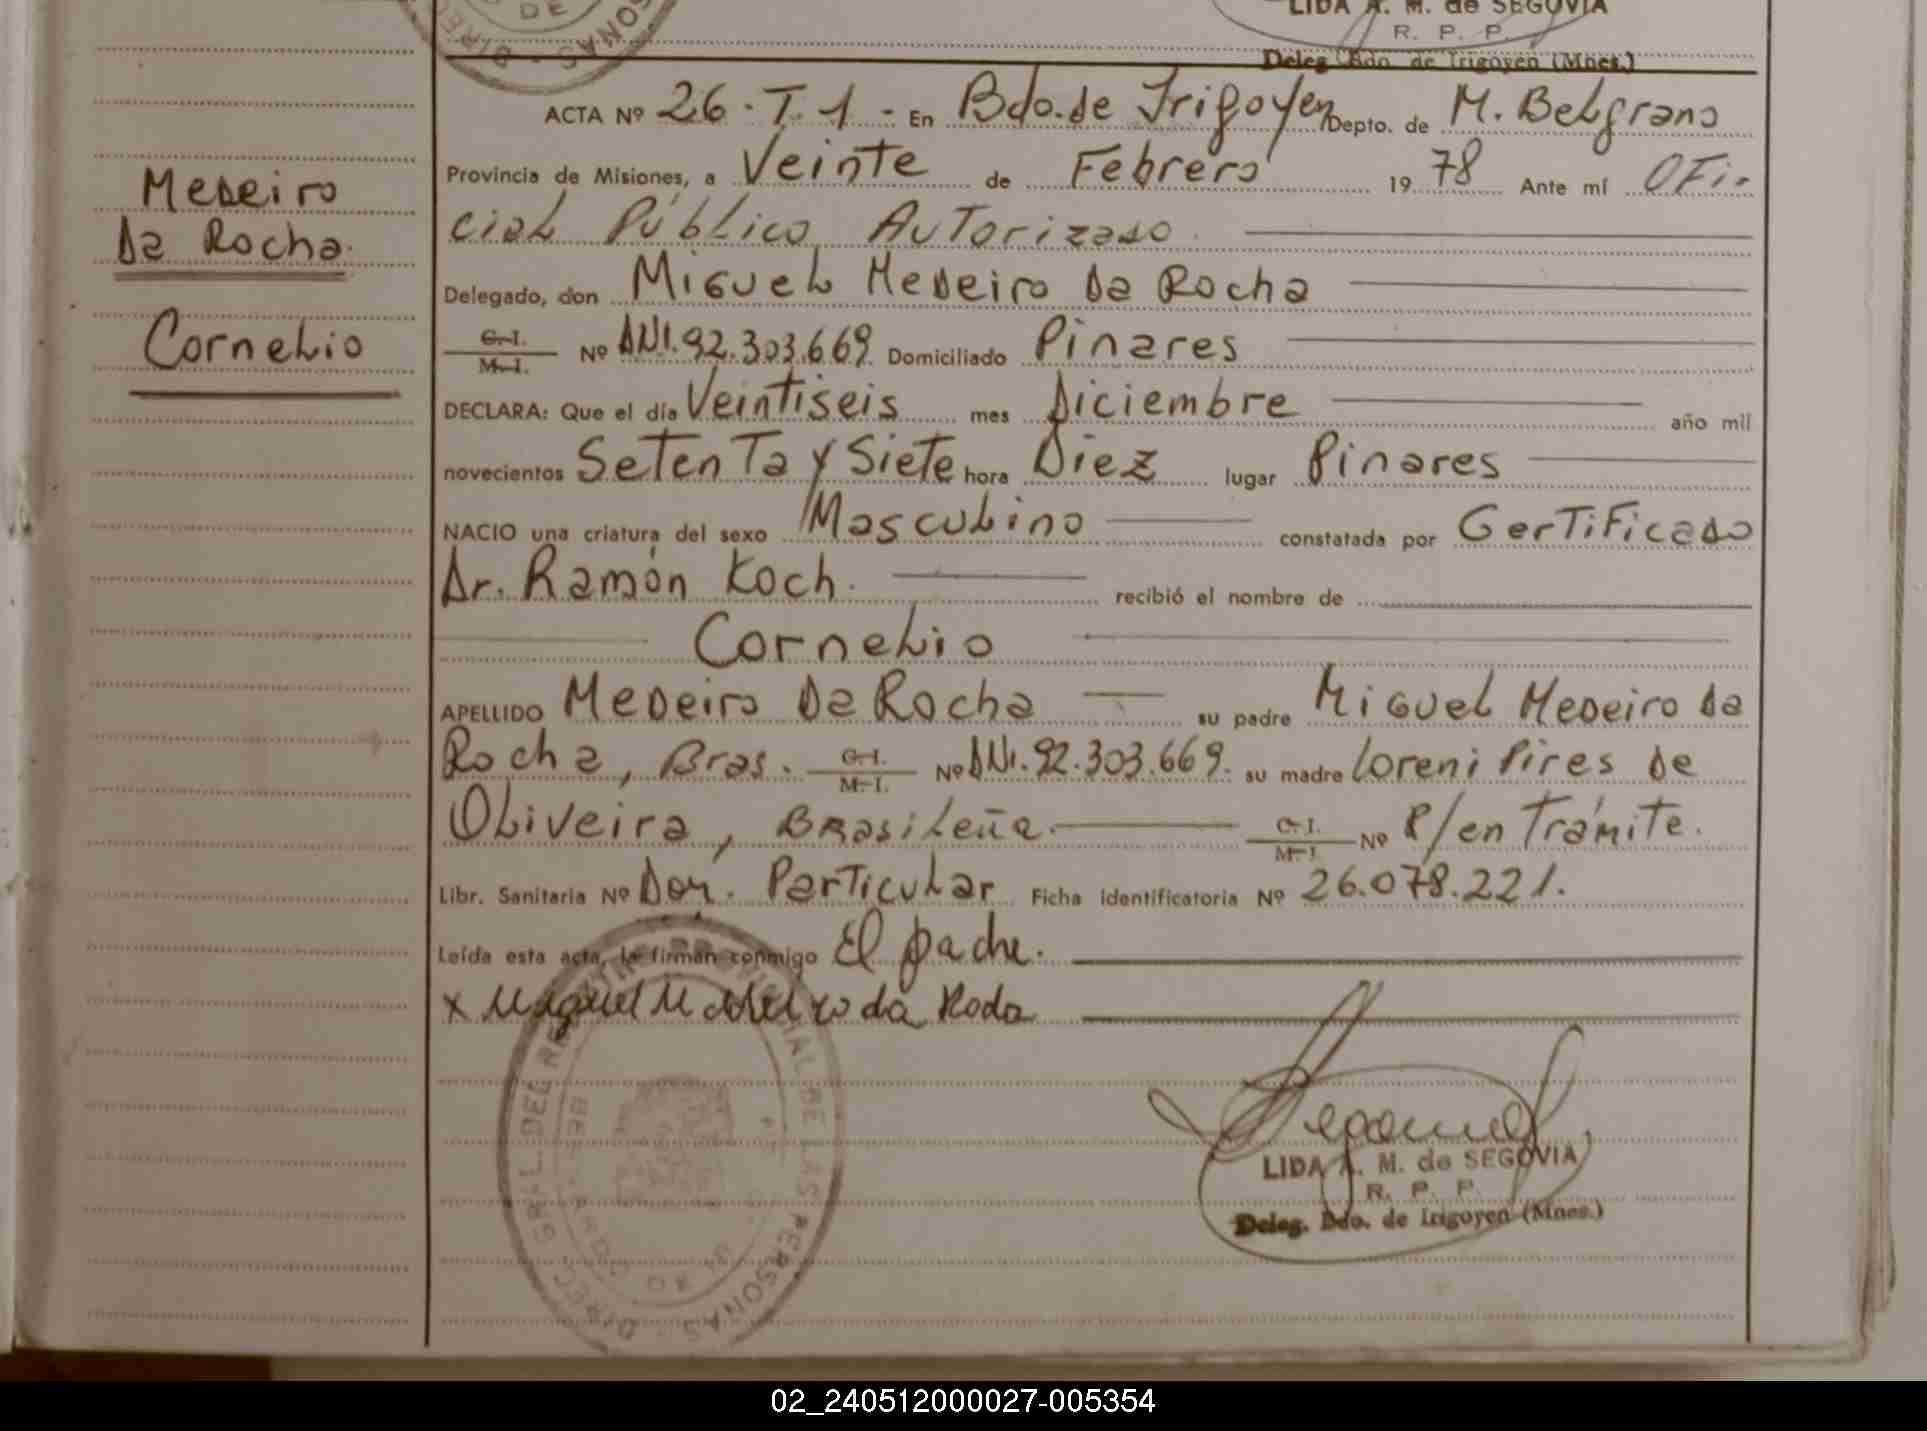 LIDA A. M. de SEGOVIA
R. P. P.
Deleg. Bdo. de Irigoyen (Mnes.)
Medeiro
Da Rocha.
Cornelio
ACTA Nº 26 - T. 1 - En Bdo. de Irigoyen, Depto. de M. Belgrano
Provincia de Misiones, a Veinte de Febrero 19 78 Ante mí OFi-
cial Público Autorizado.
Delegado, don Miguel Medeiro Da Rocha
C. I.
M. I. Nº DNI. 92.303.669 Domiciliado Pinares
DECLARA: Que el día Veintiseis mes Diciembre año mil
novecientos Setenta y Siete hora Diez lugar Pinares
NACIO una criatura del sexo Masculino constatada por Certificado
Dr. Ramón Koch. recibió el nombre de
Cornelio
APELLIDO Medeiro Da Rocha su padre Miguel Medeiro Da
Rocha, Bras. C. I. M. I. Nº DNI. 92.303.669. su madre Loreni Pires de
Oliveira, Brasileña. C. I. M. I. Nº P/en Trámite.
Libr. Sanitaria Nº Dom. Particular Ficha Identificatoria Nº 26.078.221.
Leída esta acta, la firman conmigo El padre.
x Miguel Medeiro da Rocha
DIREC. GRAL. DEL REGISTRO PROVINCIAL DE LAS PERSONAS
LIDA A. M. de SEGOVIA
R. P. P.
Deleg. Bdo. de Irigoyen (Mnes.)
02_240512000027-005354